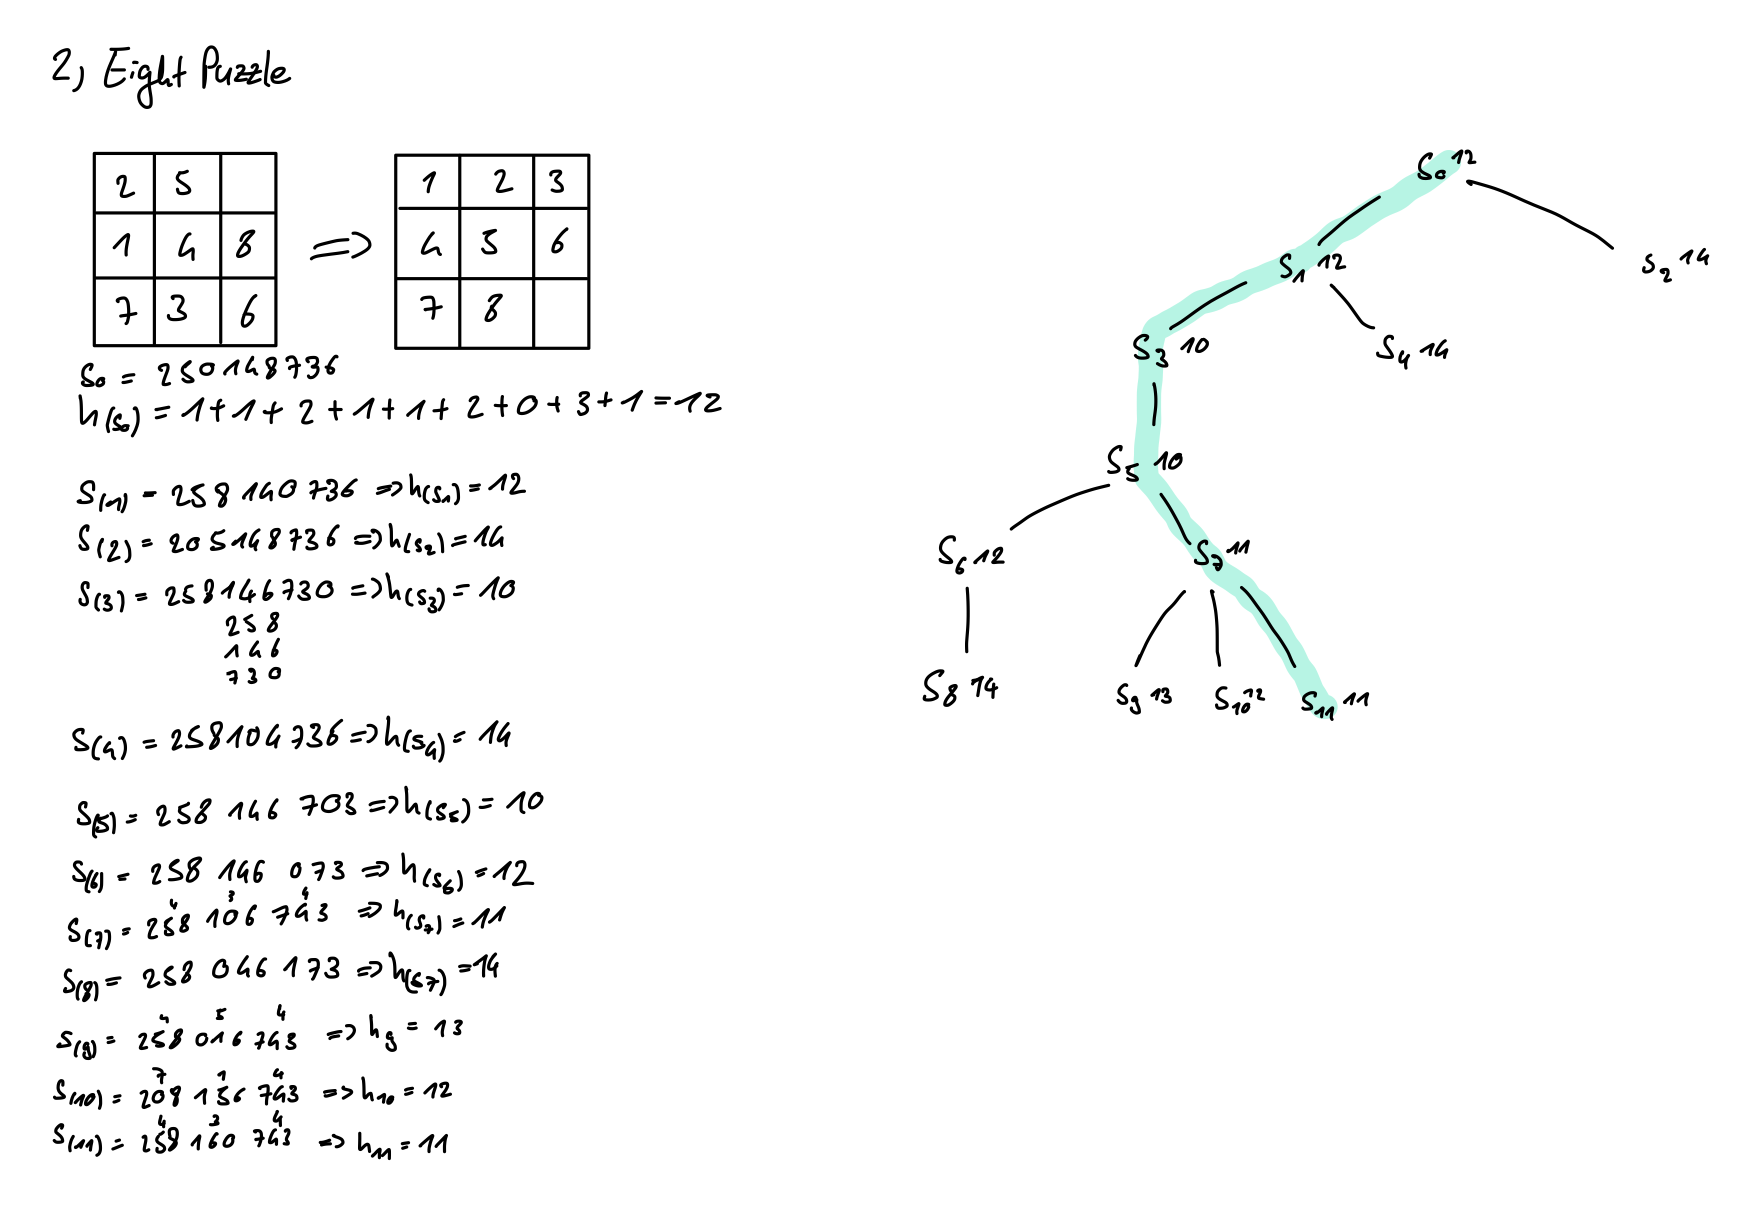 2, Eight Puzzle
2 5
1 4 8
7 3 6
=>
1 2 3
4 5 6
7 8
S0 = 250148736
h(S0) = 1+1+2+1+1+2+0+3+1=12
S(1) = 258 140 736 => h(S1) = 12
S(2) = 205148736 => h(S2) = 14
S(3) = 258146730 => h(S3) = 10
258
146
730
S(4) = 258104736 => h(S4) = 14
S(5) = 258 146 703 => h(S5) = 10
S(6) = 258 146 073 => h(S6) = 12
4 3 4
S(7) = 258 106 743 => h(S7) = 11
S(8) = 258 046 173 => h(S7) = 14
4 5 4
S(9) = 258 016 743 => h9 = 13
7 1 4
S(10) = 208 156 743 => h10 = 12
4 3 4
S(11) = 258 160 743 => h11 = 11
S0 12
S1 12
S2 14
S3 10
S4 14
S5 10
S6 12
S7 11
S8 14
S9 13
S10 12
S11 11